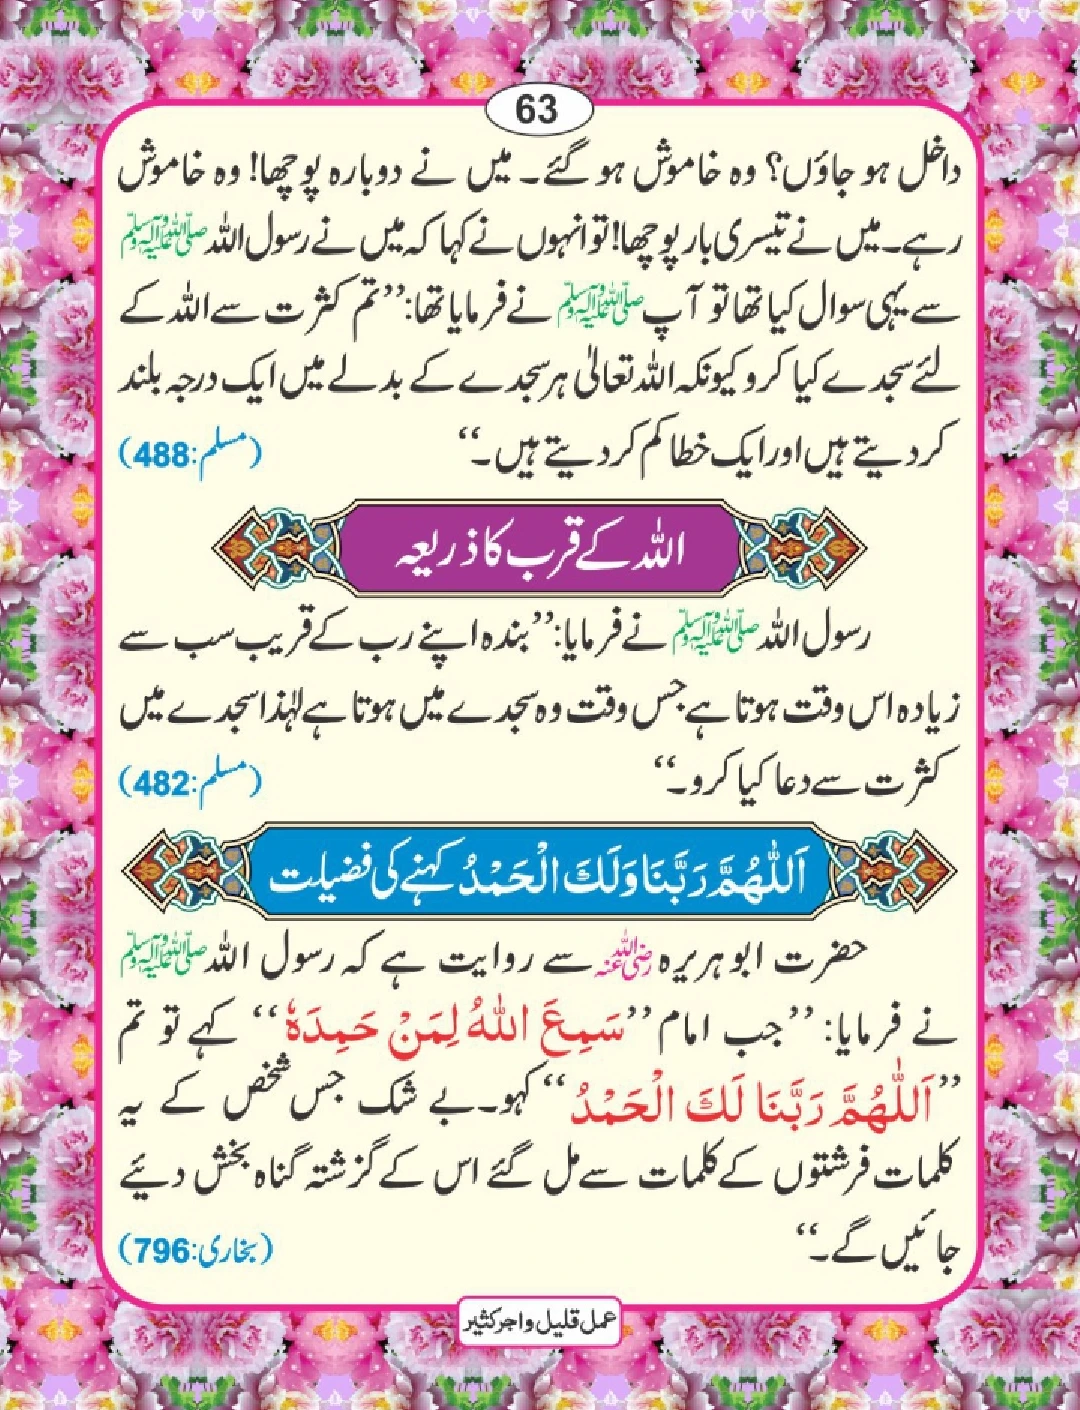 63
داخل ہو جاؤں؟ وہ خاموش ہو گئے۔ میں نے دوبارہ پوچھا! وہ خاموش
رہے۔ میں نے تیسری بار پوچھا! تو انہوں نے کہا کہ میں نے رسول اللہ ﷺ
سے یہی سوال کیا تھا تو آپ ﷺ نے فرمایا تھا: ’’تم کثرت سے اللہ کے
لئے سجدے کیا کرو کیونکہ اللہ تعالیٰ ہر سجدے کے بدلے میں ایک درجہ بلند
کر دیتے ہیں اور ایک خطا کم کر دیتے ہیں۔‘‘ (مسلم:488)
اللہ کے قرب کا ذریعہ
رسول اللہ ﷺ نے فرمایا: ’’بندہ اپنے رب کے قریب سب سے
زیادہ اس وقت ہوتا ہے جس وقت وہ سجدے میں ہوتا ہے لہٰذا سجدے میں
کثرت سے دعا کیا کرو۔‘‘ (مسلم:482)
اَللّٰهُمَّ رَبَّنَا وَلَكَ الْحَمْدُ کہنے کی فضیلت
حضرت ابو ہریرہ رضی اللہ عنہ سے روایت ہے کہ رسول اللہ ﷺ
نے فرمایا: ’’جب امام ’’سَمِعَ اللّٰهُ لِمَنْ حَمِدَهٗ‘‘ کہے تو تم
’’اَللّٰهُمَّ رَبَّنَا لَكَ الْحَمْدُ‘‘ کہو۔ بے شک جس شخص کے یہ
کلمات فرشتوں کے کلمات سے مل گئے اس کے گزشتہ گناہ بخش دیئے
جائیں گے۔‘‘ (بخاری:796)
عمل قلیل و اجر کثیر